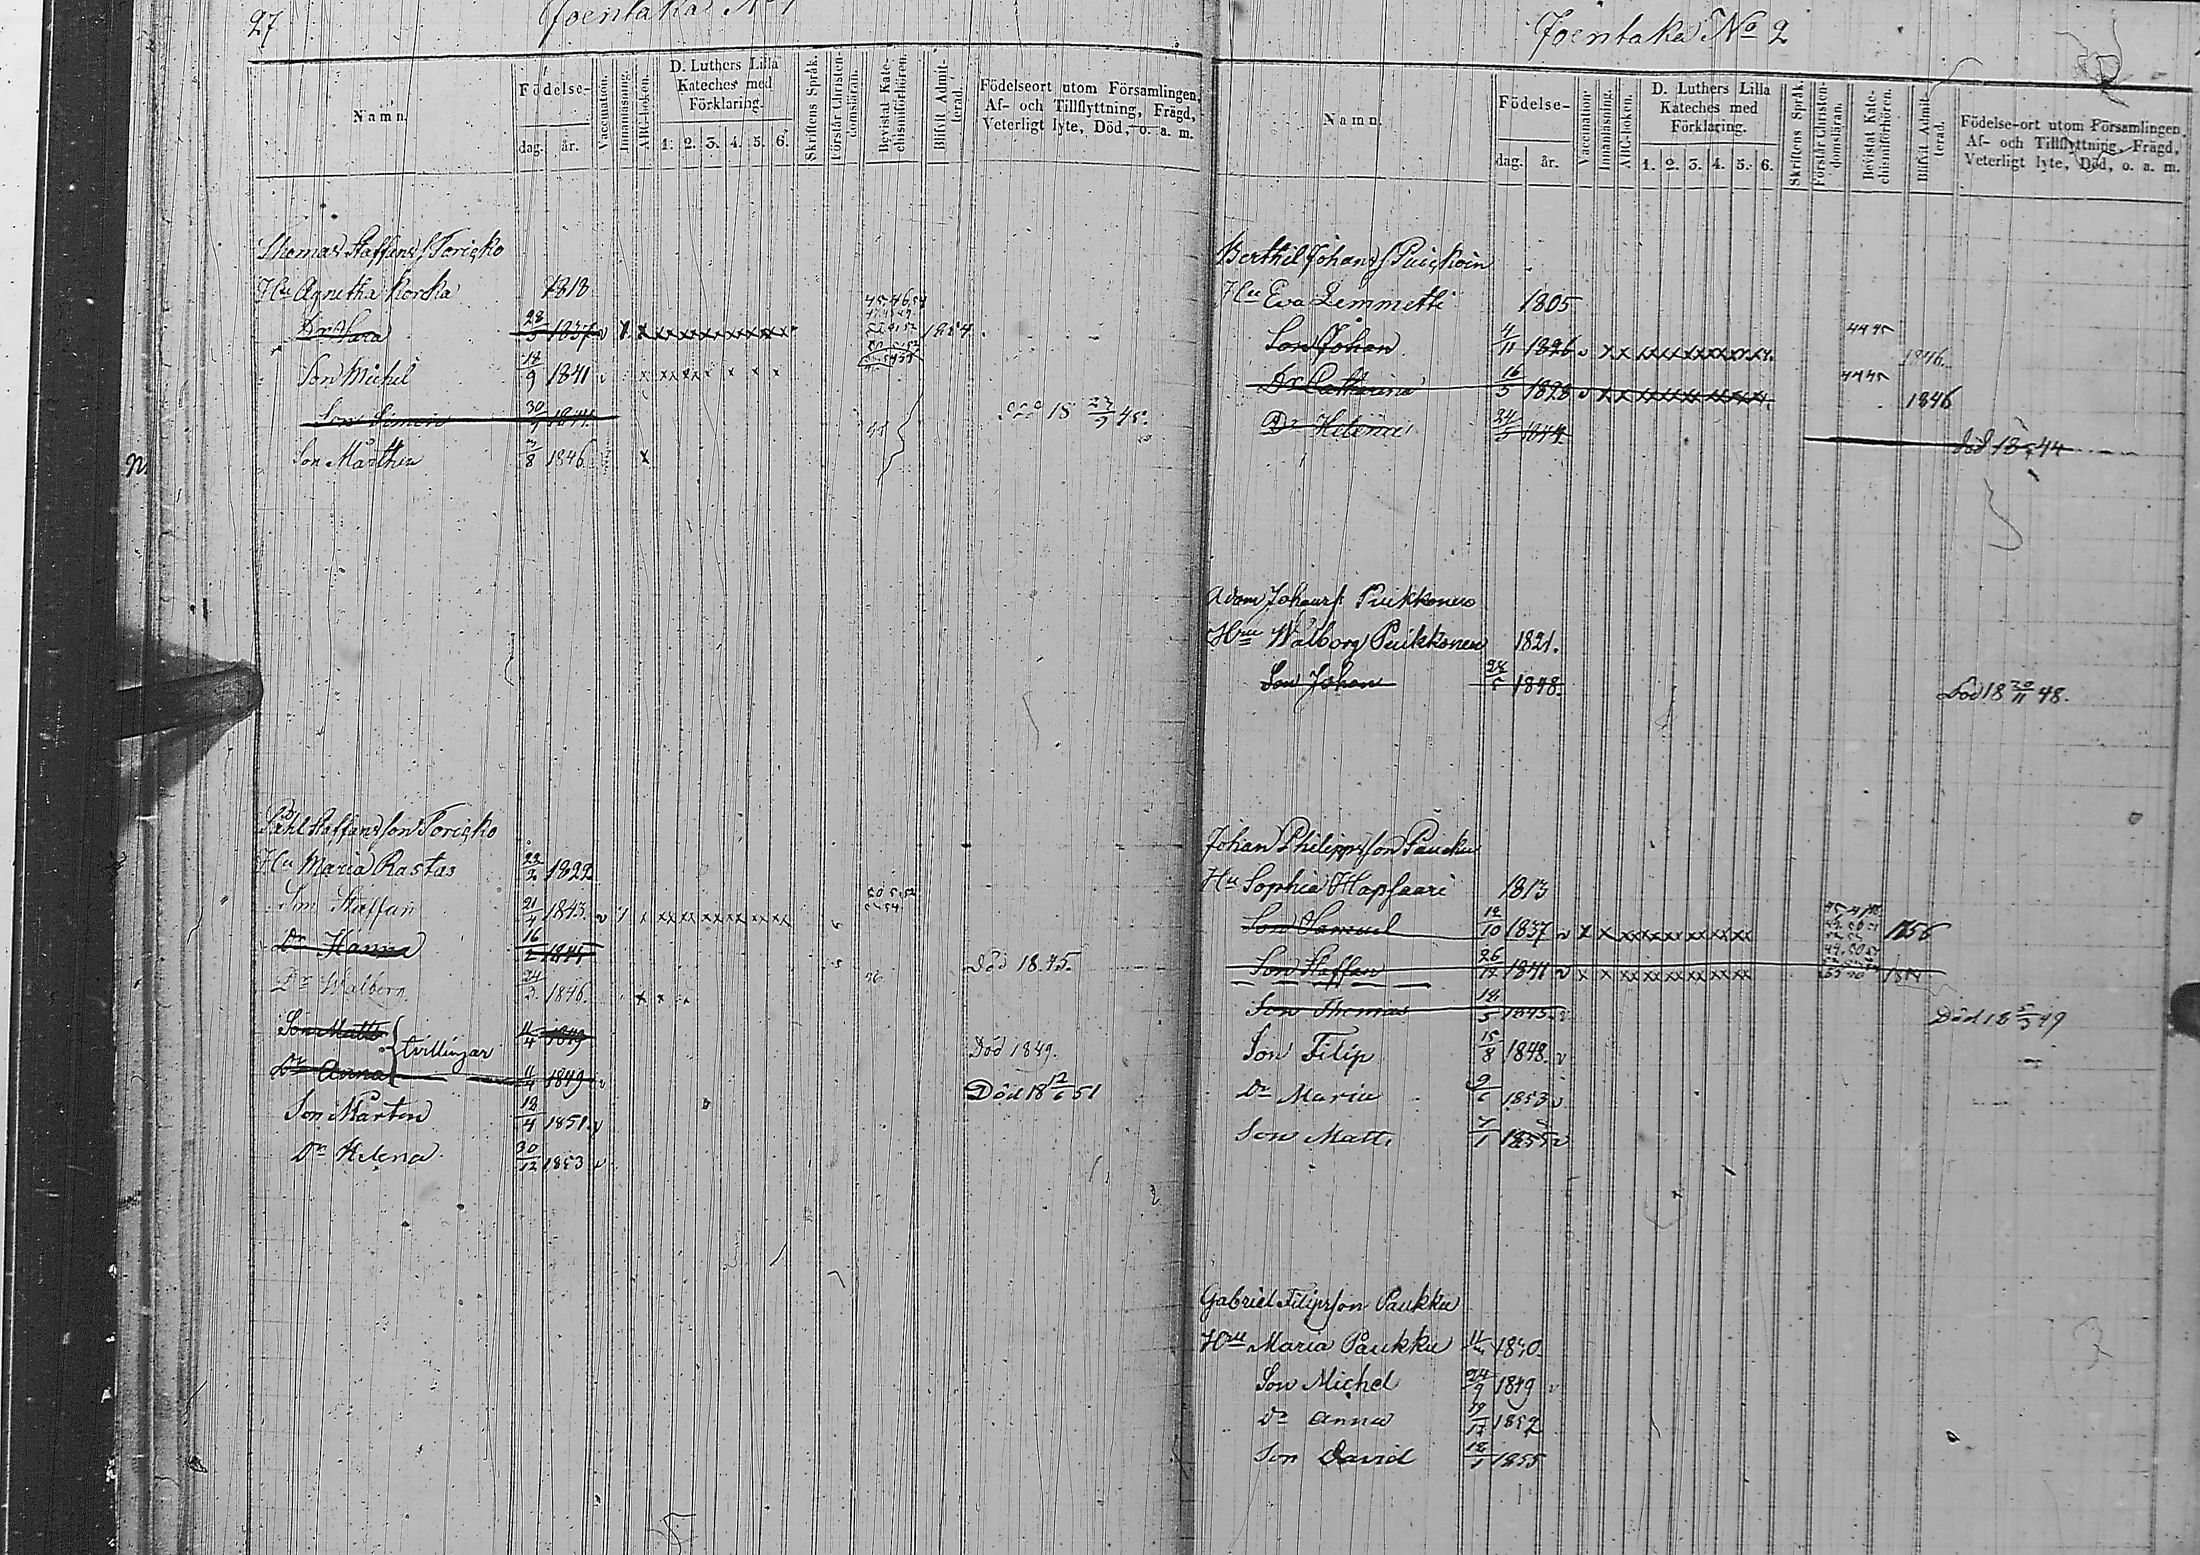 27
Joentaka No 1
Namn.
Födelse-
dag.
år.
Vaccination.
Innanläsning.
ABC-boken.
D. Luthers Lilla
Kateches med
Förklaring.
1. 2. 3. 4. 5. 6.
Skriftens Språk.
Förstår Christen-
domsläran.
Bevistat Kate-
chismiförhören.
Blifvit Admit-
terad.
Födelseort utom Församlingen,
Af- och Tillflyttning, Frägd,
Veterligt lyte, Död, o. a. m.
Thomas Staffans
Hu Agnetha Korska 1818
1837 v x x xx xx xx xx xx xx 1854
Son Michel 18/9 1841 v x
Son Simon 30 1844
Son Mårthen 7/8 1846 x
Påhl Staffansson
Hu Maria Rastas 22/2 1822
Son Staffan 21/4 1843 v
Dr Hanna 16/2 1845 Död 1845.
Dr Walborg 24/3 1846 x x
Son Matts 4 1849 Död 1849.
tvillingar
Dr Anna 4 1849 v Död 18 12/6 51
Son Mårten 12/4 1851 v
Dr Helena 30/12 1853 v
Joentaka No 2
Namn.
Födelse-
dag.
år.
Vaccination.
Innanläsning.
ABC-boken.
D. Luthers Lilla
Kateches med
Förklaring.
1. 2. 3. 4. 5. 6.
Skriftens Språk.
Förstår Christen-
domsläran.
Bevistat Kate-
chismiförhören.
Blifvit Admit-
terad.
Födelse-ort utom Församlingen,
Af- och Tillflyttning, Frägd,
Veterligt lyte, Död, o. a. m.
Berthil Johans
Hu Eva Lemmetti 1805
Son Johan 4/11 1826 v x x xx xx xx xx xx xx 44 45 1846.
Dr Catharina 16/5 1828 v x x xx xx xx xx xx xx 44 45 1846
Dr Helena 24 1844 död 18 44
Adam Johans Puikkonen
Hru Walborg Puikkonen 1821.
Son Johan 1848. Död 18 20/11 48.
Johan Philippsson
Hu Sophia Hapsaari 1813
Son Samuel 12/10 1837 v x x xx xx xx xx xx xx
Son Staffan 26/12 1841 v x x xx xx xx xx xx xx
Son Thomas 12/5 1845 v Död 18 49
Son Filip 15/8 1848 v
Dr Maria 9/6 1853 v
Son Matts 7/1 1855 v
Gabriel Filipsson Paukku
Hru Maria Paukku
Son Michel 24/9 1849 v
Dr Anna 19/12 1852
Son David 18/1 1855